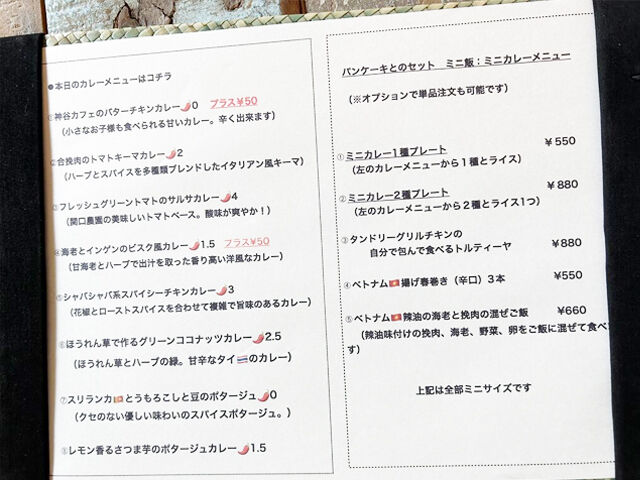 ●本日のカレーメニューはコチラ
①神谷カフェのバターチキンカレー🌶0 プラス¥50
(小さなお子様も食べられる甘いカレー。辛く出来ます)
②合挽肉のトマトキーマカレー🌶2
(ハーブとスパイスを多種類ブレンドしたイタリアン風キーマ)
③フレッシュグリーントマトのサルサカレー🌶4
(関口農園の美味しいトマトベース。酸味が爽やか！)
④海老とインゲンのビスク風カレー🌶1.5 プラス¥50
(甘海老とハーブで出汁を取った香り高い洋風なカレー)
⑤シャバシャバ系スパイシーチキンカレー🌶3
(花椒とローストスパイスを合わせて複雑で旨味のあるカレー)
⑥ほうれん草で作るグリーンココナッツカレー🌶2.5
(ほうれん草とハーブの緑。甘辛なタイ🇹🇭のカレー)
⑦スリランカ🇱🇰とうもろこしと豆のポタージュ🌶0
(クセのない優しい味わいのスパイスポタージュ。)
⑧レモン香るさつま芋のポタージュカレー🌶1.5
パンケーキとのセット ミニ飯：ミニカレーメニュー
(※オプションで単品注文も可能です)
①ミニカレー1種プレート ¥550
(左のカレーメニューから1種とライス)
②ミニカレー2種プレート ¥880
(左のカレーメニューから2種とライス1つ)
③タンドリーグリルチキンの
自分で包んで食べるトルティーヤ ¥880
④ベトナム🇻🇳揚げ春巻き（辛口）3本 ¥550
⑤ベトナム🇻🇳辣油の海老と挽肉の混ぜご飯 ¥660
(辣油味付けの挽肉、海老、野菜、卵をご飯に混ぜて食べ
す)
上記は全部ミニサイズです